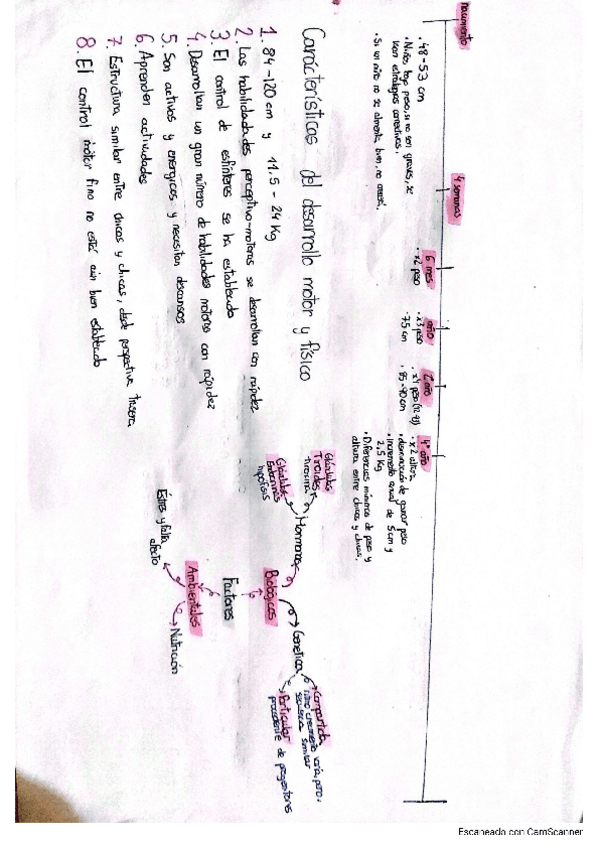 nacimiento
· 48-53 cm
· Niños bajo peso, si no son graves, se
usan estrategias correctivas.
· Si un niño no se alimenta bien, no crece.
4 semanas
6 mes
· x2 peso
año
· x3 peso
· 75 cm
2 año
· x4 peso (12 kg)
· 85-90 cm
4º año
· x2 altura
· disminución de ganar peso
· incremento anual de 5 cm y
2,5 Kg
· Diferencias mínimas de peso y
altura entre chicos y chicas.
Características del desarrollo motor y físico
1. 84-120 cm y 11.5 - 24 Kg
2. Las habilidades perceptivo-motoras se desarrollan con rapidez
3. El control de esfínteres se ha establecido
4. Desarrollan un gran número de habilidades motoras con rapidez
5. Son activos y energicos y necesitan descansos
6. Aprenden actividades
7. Estructura similar entre chicos y chicas, desde perspectiva trasera
8. El control motor fino no está aún bien establecido
Factores
Biológicos
Hormonas
Glándulas
Tiroides
tiroxina
Glándulas
Endocrinas
hipófisis
Genética
Compartida
ritmo crecimiento varía, pero
secuencia similar
Particular
procedente de progenitores
Ambientales
Estrés y falta
afecto
Nutrición
Escaneado con CamScanner